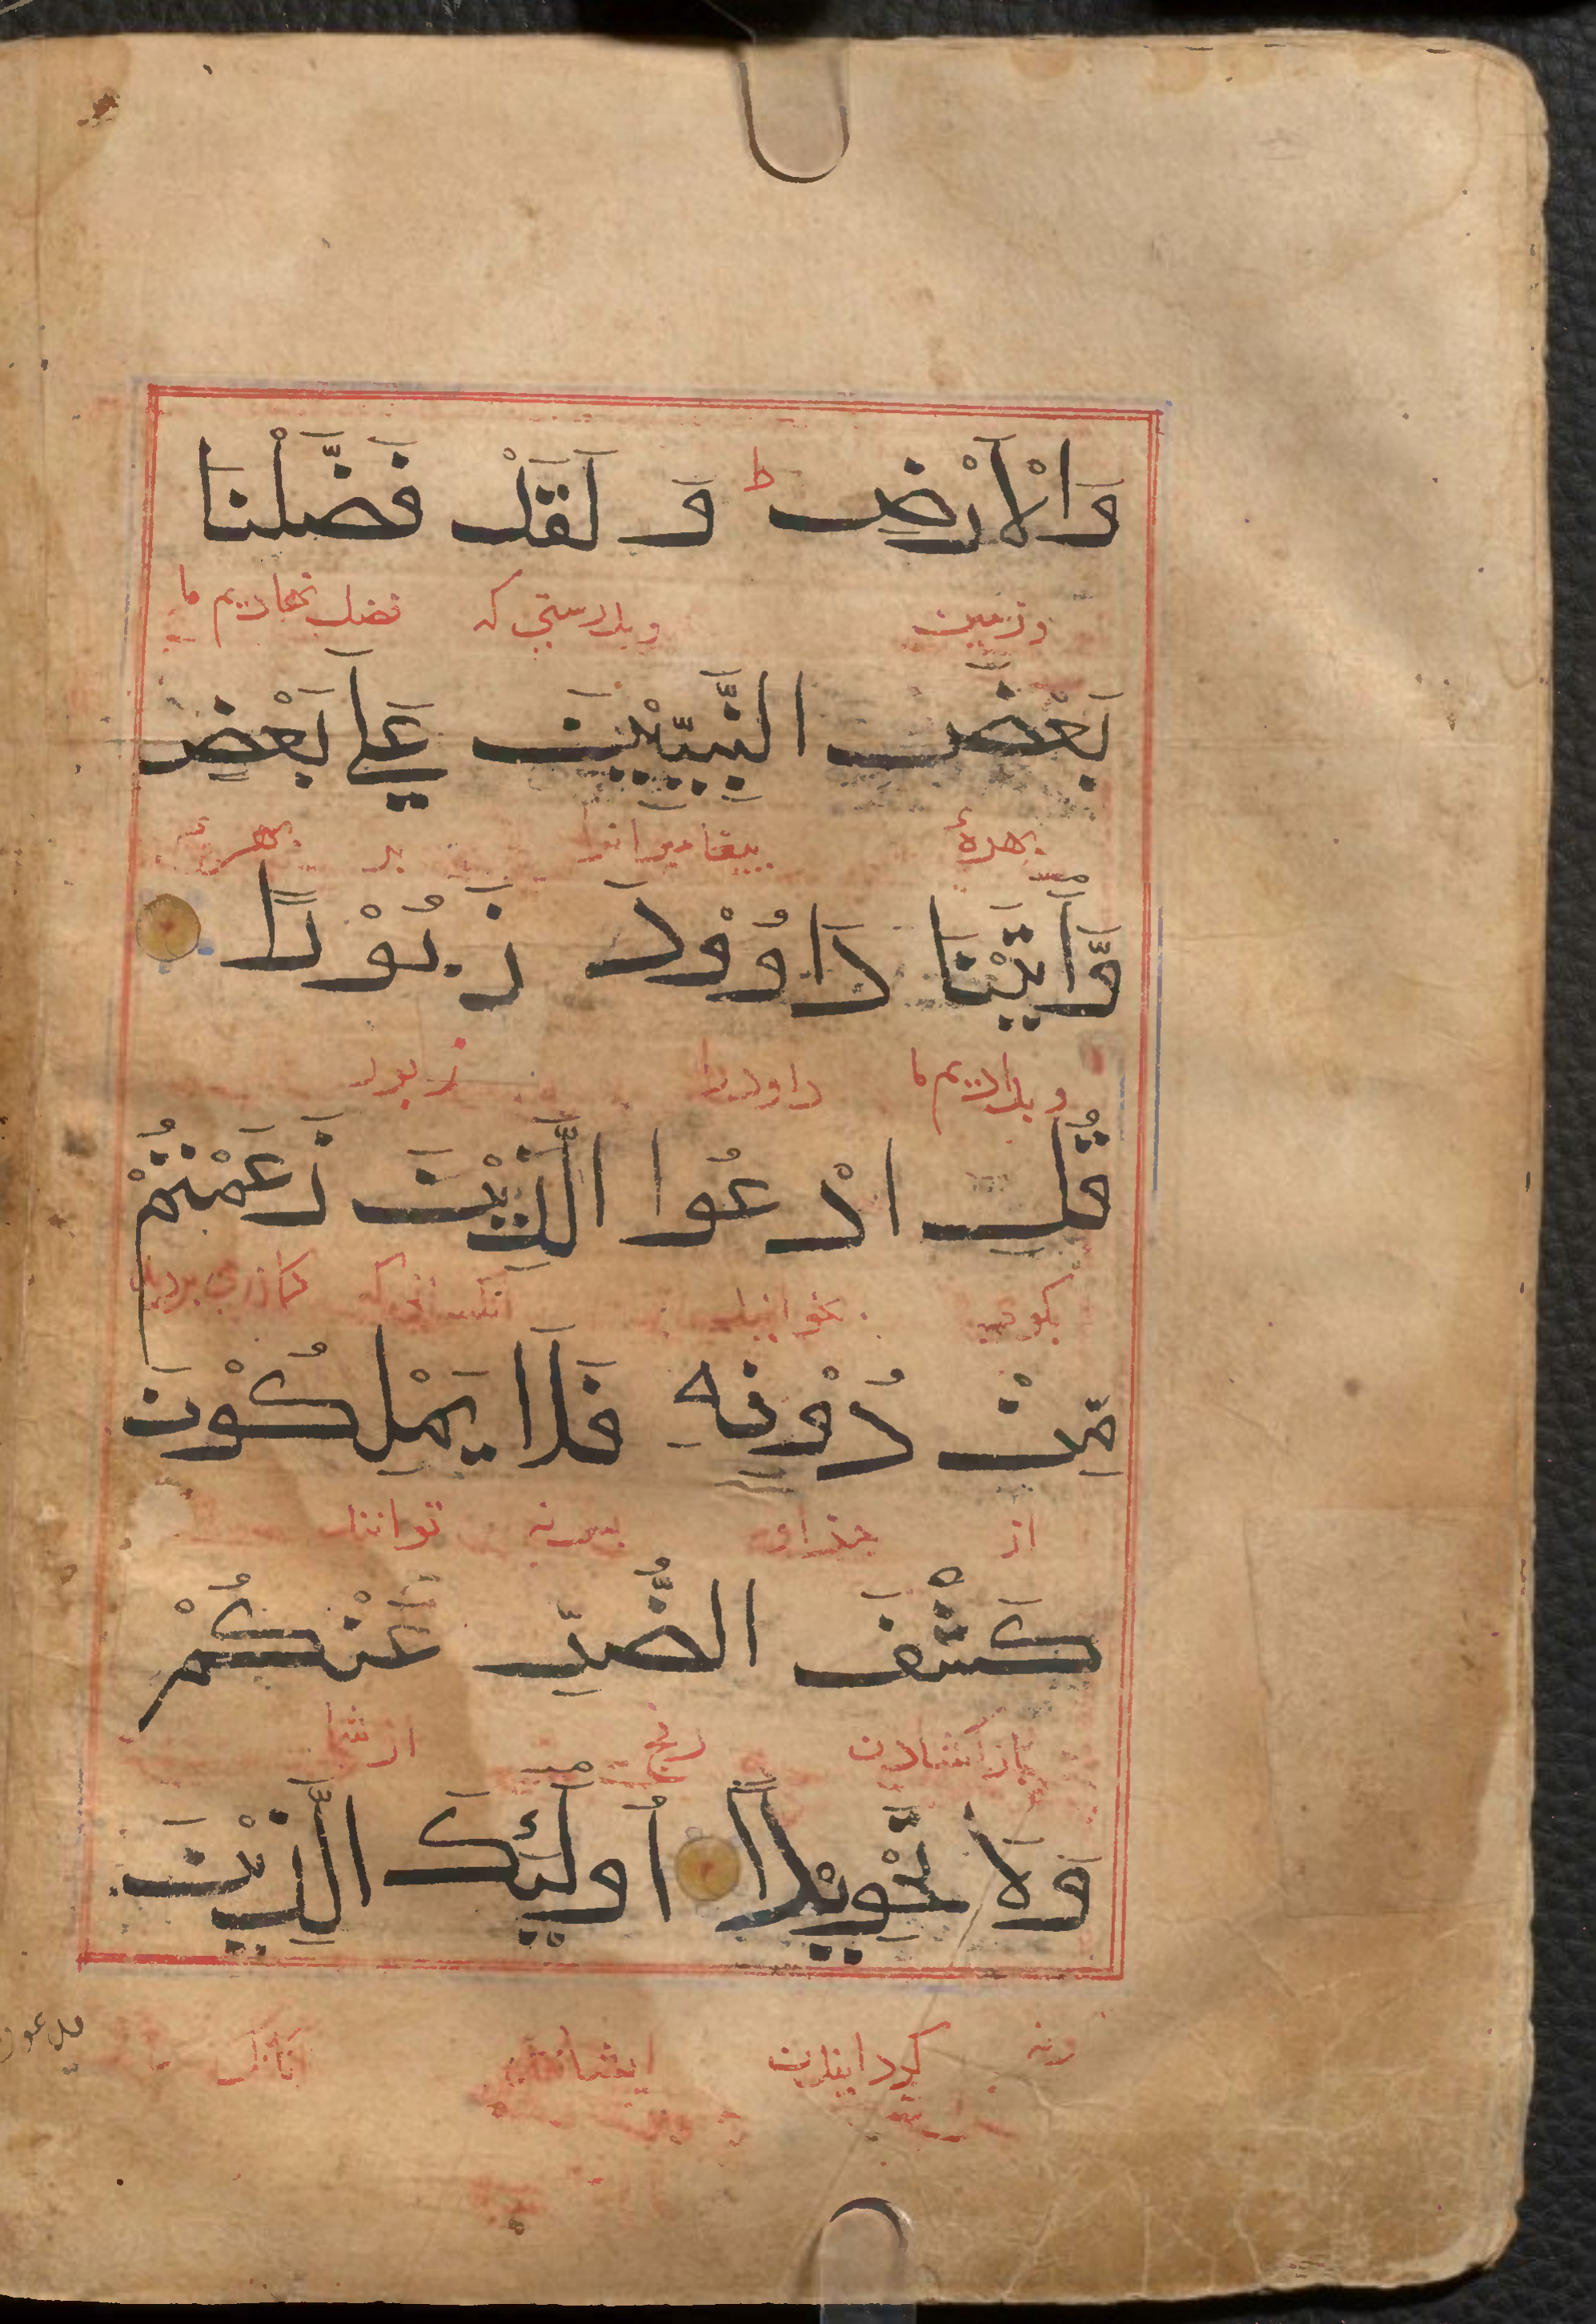 وَالْاَرْضِ ط وَ لَقَدْ فَضَّلْنَا
وزمین وبدرستی که فضل نهادیم ما
بَعْضَ النَّبِيّٖيْنَ عَلٰي بَعْضٍ
بهرهٔ پیغامبرانرا بر بهرهٔ
وَّاٰتَيْنَا دَاوُوْدَ زَبُوْرًا
وبدادیم ما داود را زبور
قُلِ ادْعُوا الَّذِيْنَ زَعَمْتُمْ
بگوی بخوانید آنکسانی که
مِّنْ دُوْنِهٖ فَلَا يَمْلِكُوْنَ
از جذ او پس نه توانند
كَشْفَ الضُّرِّ عَنْكُمْ
باز گشادن رنج از شما
وَلَا تَحْوِيْلًا اُولٰٓئِكَ الَّذِيْنَ
ونه گردانیدن ایشانند
يدعون